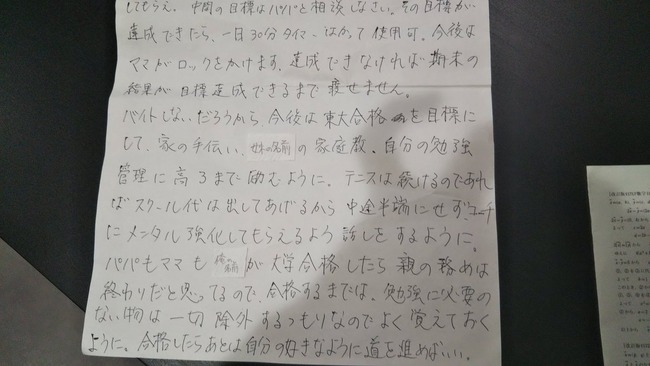 してもらえ。中間の目標はパパと相談しなさい。その目標が
達成できたら、一日30分タイマーはかって使用可。今後は
ママがロックをかけます。達成できなければ期末の
結果が目標達成できるまで渡せません。
バイトしないだろうから今後は東大合格を目標に
して、家の手伝い、妹の名前の家庭教、自分の勉強
管理に高3まで励むように。テニスは続けるのであれ
ばスクール代は出してあげるから中途半端にせず、コーチ
にメンタル強化してもらえるよう話しをするように。
パパもママも俺の名前が大学合格したら親の務めは
終わりだと思ってるので、合格するまでは、勉強に必要の
ない物は一切除外するつもりなのでよく覚えておく
ように。合格したらあとは自分の好きなように道を進めばいい。